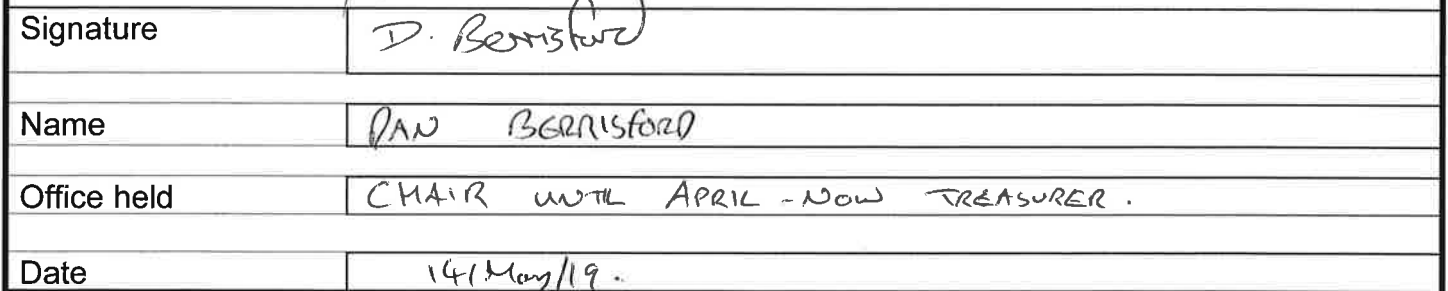 Signature D. Berrisford
Name DAN BERRISFORD
Office held CHAIR UNTIL APRIL - NOW TREASURER.
Date 14/May/19.